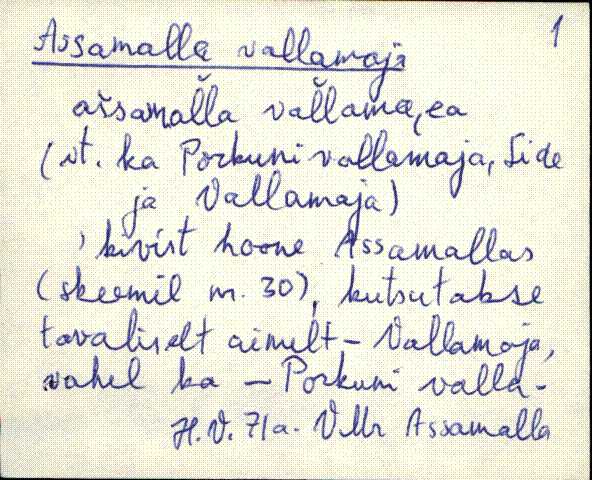 1
Assamalla vallamaja
aššamalla vallamaea
(vt. ka Porkuni vallamaja, Side
ja Vallamaja)
, kivist hoone Assamallas
(skeemil nr. 30), kutsutakse
tavaliselt ainult – Vallamaja,
vahel ka – Porkuni valla-
H.V. 71a. VMr Assamalla